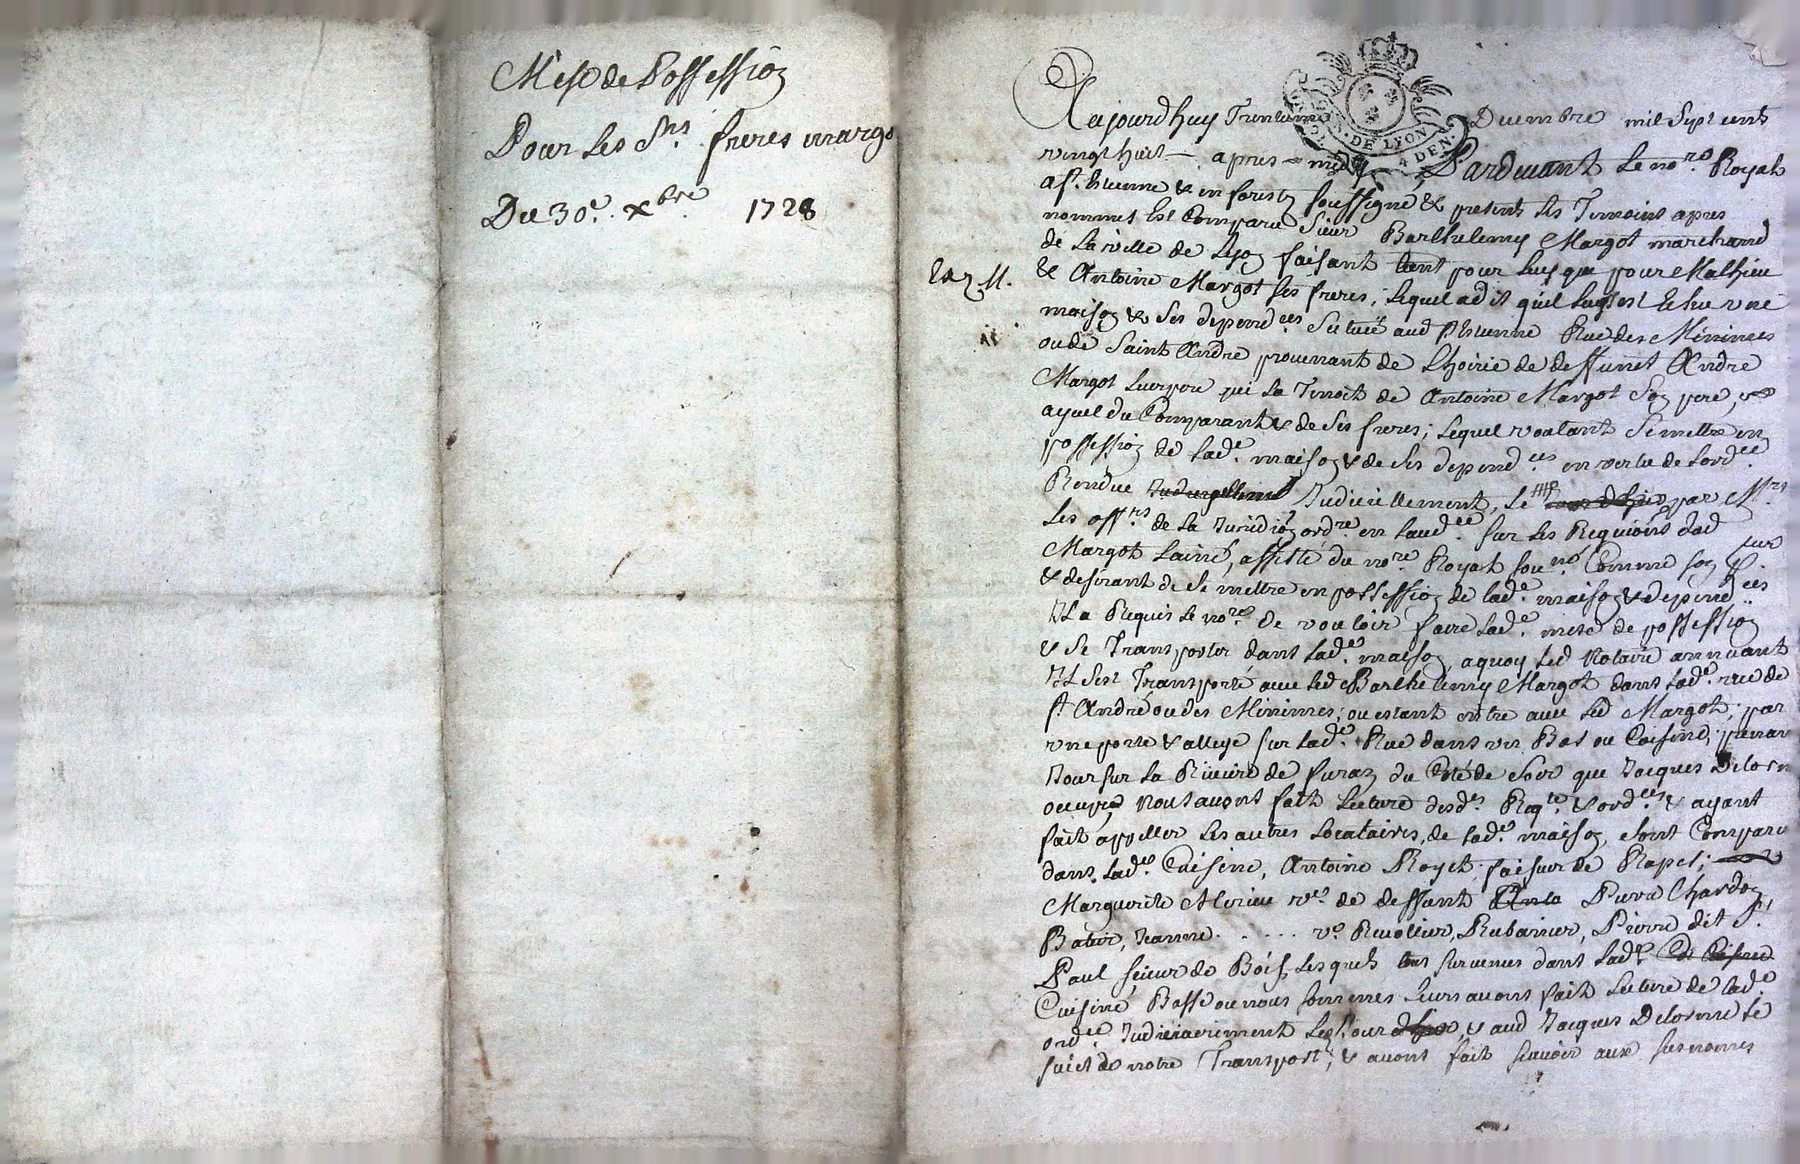 Mise de Possession
Pour Les Srs. freres margo
Du 30e. xbre. 1728
GEN. DE LYON. 4 DEN.
Aujourd'huy Trentieme Decembre mil Sept cents
vingt huit — apres — midy Pardevant Le nore Royal
a St. Estienne & en forestz soussigné & presents Les Temoins apres
nommes Est Comparu Sieur Barthelemy Margot marchand
de La ville de Lyon faisant tant pour Luy que pour Mathieu
& Antoine Margot ses freres, Lequel a dit qu'il Luy est Echu une
maison & ses dependces situeé aud St Estienne Rue des Minimes
ou de Saint André provenant de L'hoirie de deffunt André
Margot Leur pere qui La Tenoit de Antoine Margot son pere, &
ayeul du Comparant & de ses freres; Lequel voulant se mettre en
possession de Lade. maison & de ses dependces en vertu de Lordce
Rendue Judiciellement, Le par Mrs
Les offrs de La Jurid on ordre en laude. sur Les Requions dud
Margot Lainé, assisté du nore Royal sousné Comme son pur
& desirant de se mettre en possession de lade. maison & dependces
Il a Requis Le nore de vouloir faire Lade. mise de possession
& se Transporter dans Lade. maison, a quoy Led Notaire annuant
Il s'est Transporté avec Led Barthelemy Margot dans Lade. rue de
St André ou des Minimes, ou estant entré avec Led Margot, par
une porte & alleye sur Lade. Rue dans un Bas ou Cuisine, prenan
Jour sur La Riviere de furan du Coté de soir que Jacques Delorm
occupe Nous avons fait Lecture desds Reqte & ordces & ayant
fait appeller Les autres Locataires, de lade. maison, sont Comparu
dans Lade. Cuisine, Antoine Royet faiseur de Rapes;
Marguerite Merieu ve. de deffunt Pierre Chardon
Batier, Jeanne ..... ve Revollier, Rubanier, Pierre dit St.
Paul sçieur de Bois, Lesquels tous survenus dans Lade
Cuisine Basse ou nous sommes Leurs avons fait Lecture de lade
ordce Judiciairement Led Jour & aud Jacques Delorme Le
sujet de notre Transport, & avons fait sçavoir aux susnomes